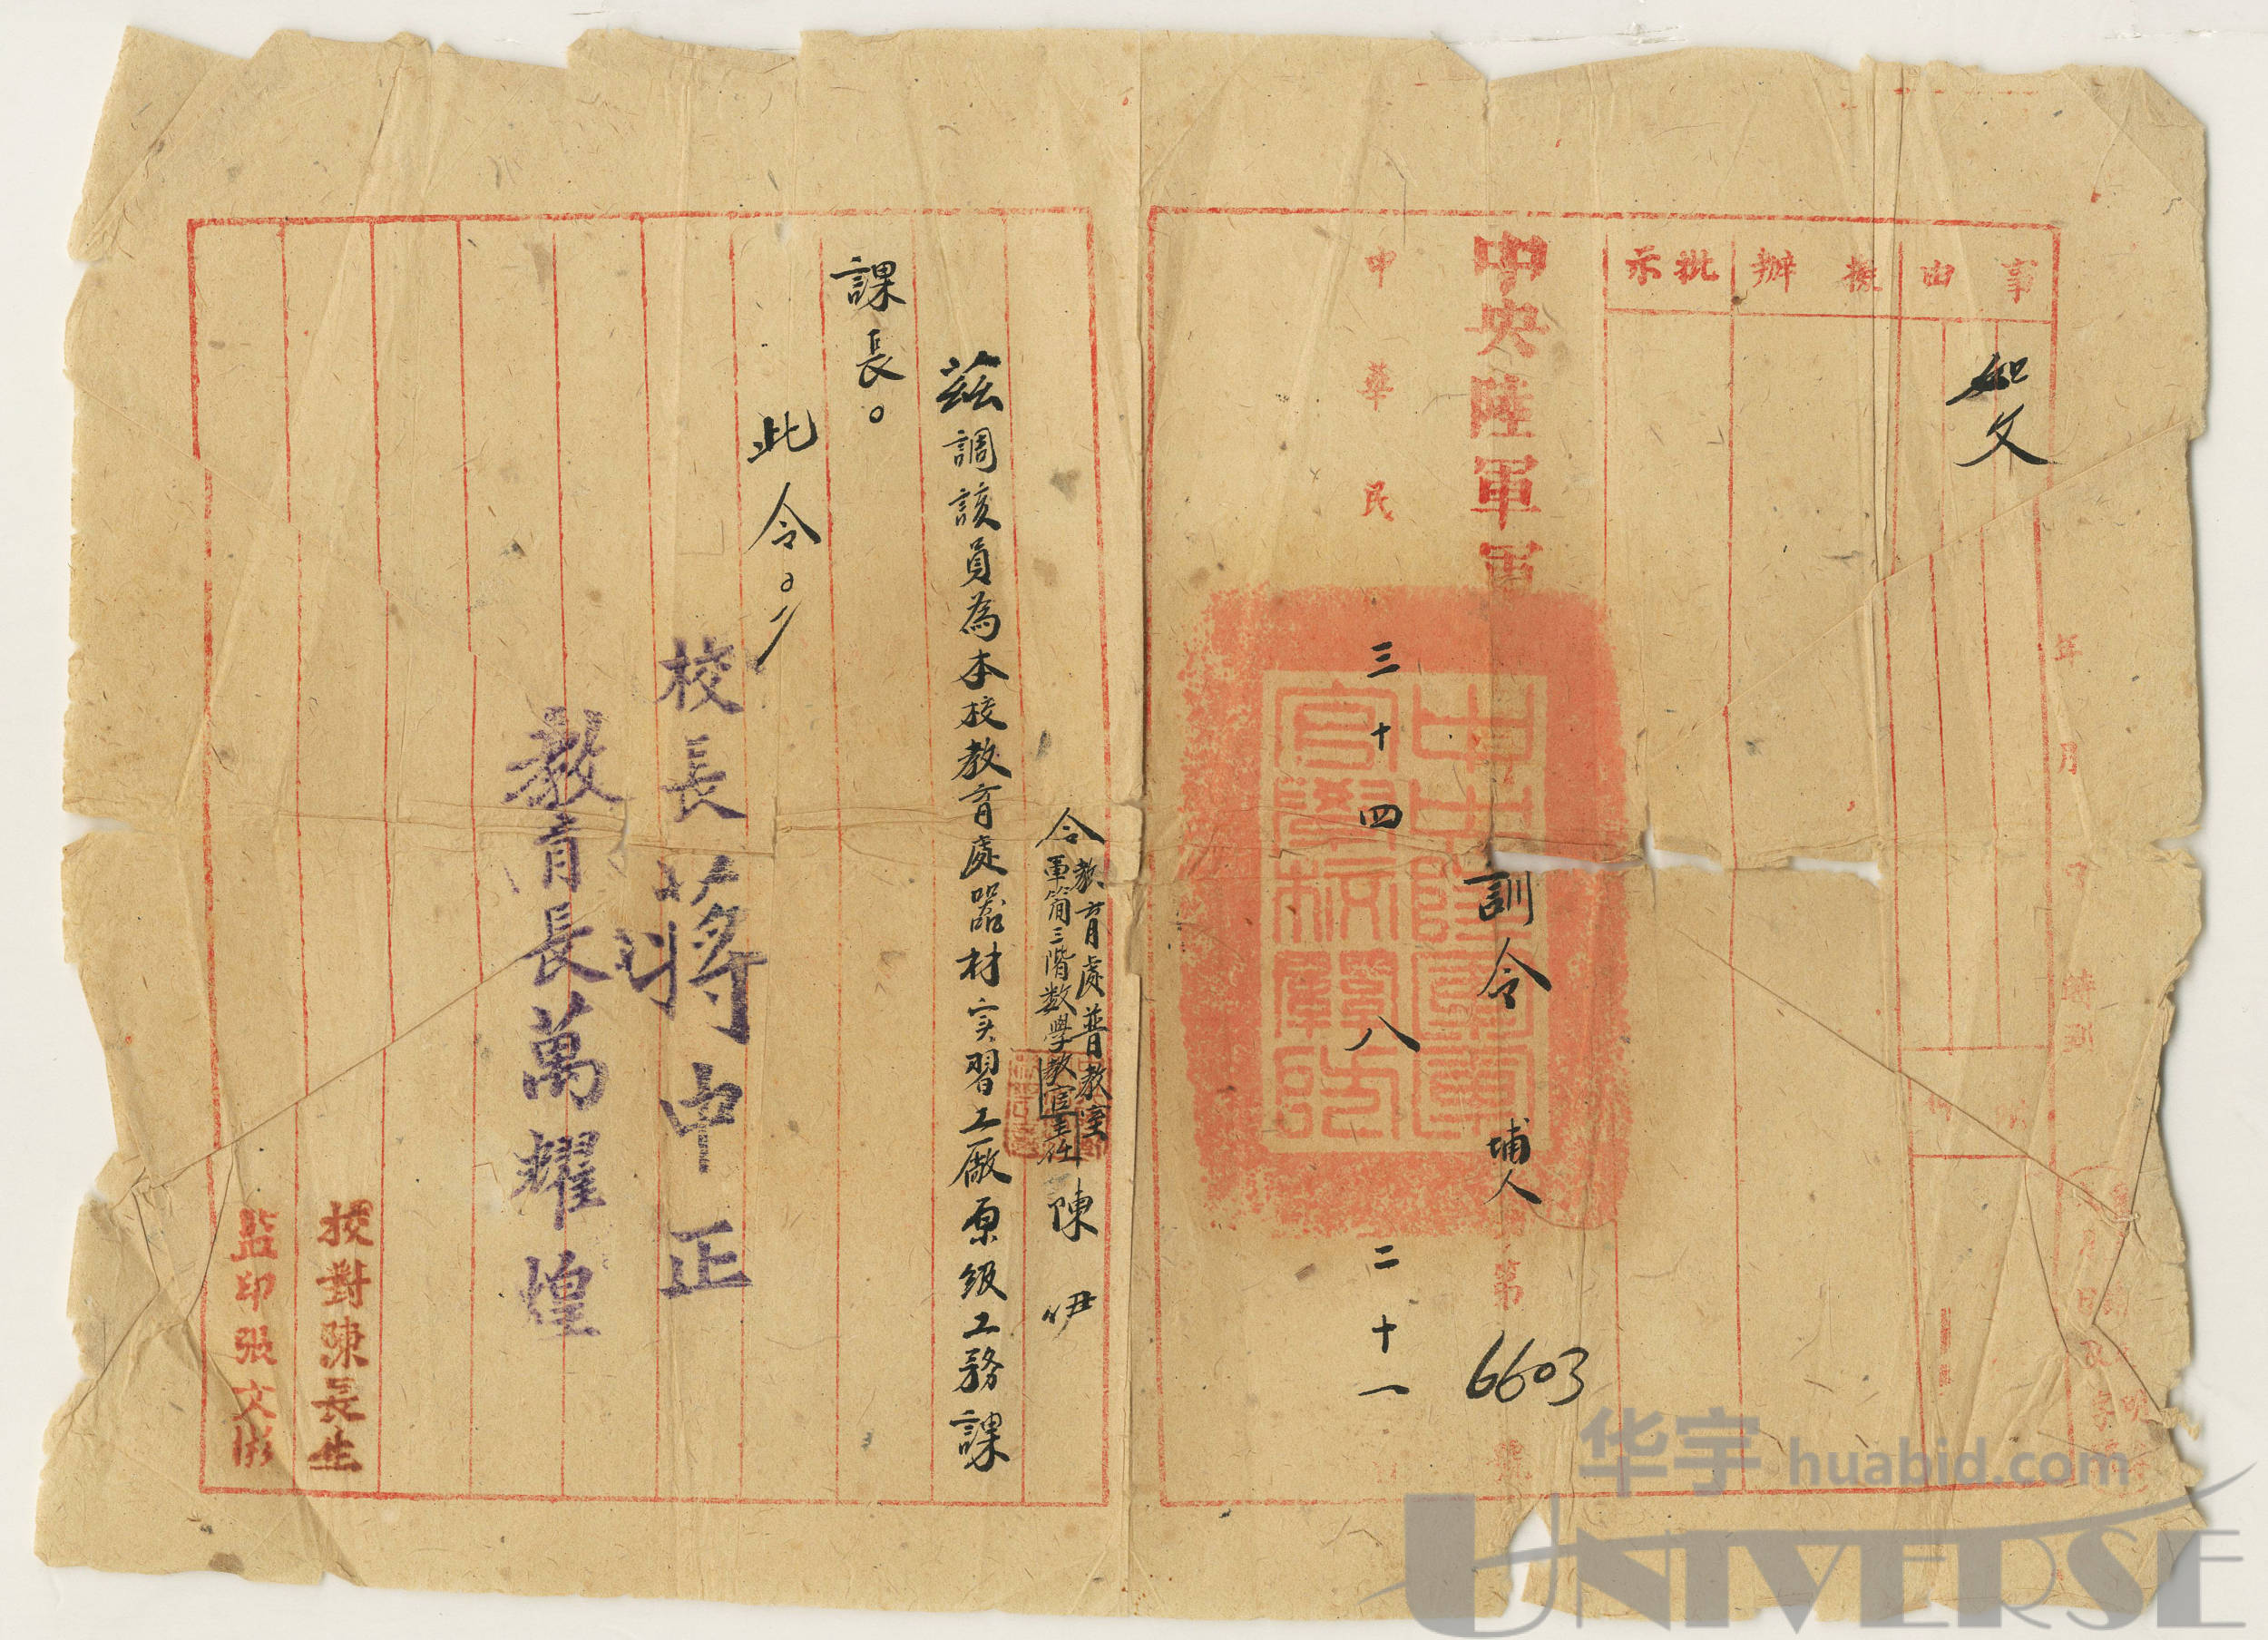 事由
擬辦
批示
如文
年 月
中央陸軍軍 訓令 埔人 第 6603 號
中華民 三十四 八 二十一
中央陸軍軍官學校關防
令 教育處普教室
軍簡三階数學教官主任 陳伊
茲調該員為本校教育處器材实習工廠原級工務課
課長。
此令。
校長蔣中正
教育長萬耀煌
校對陳長生
監印張文彬
华宇 huabid.com
UNIVERSE